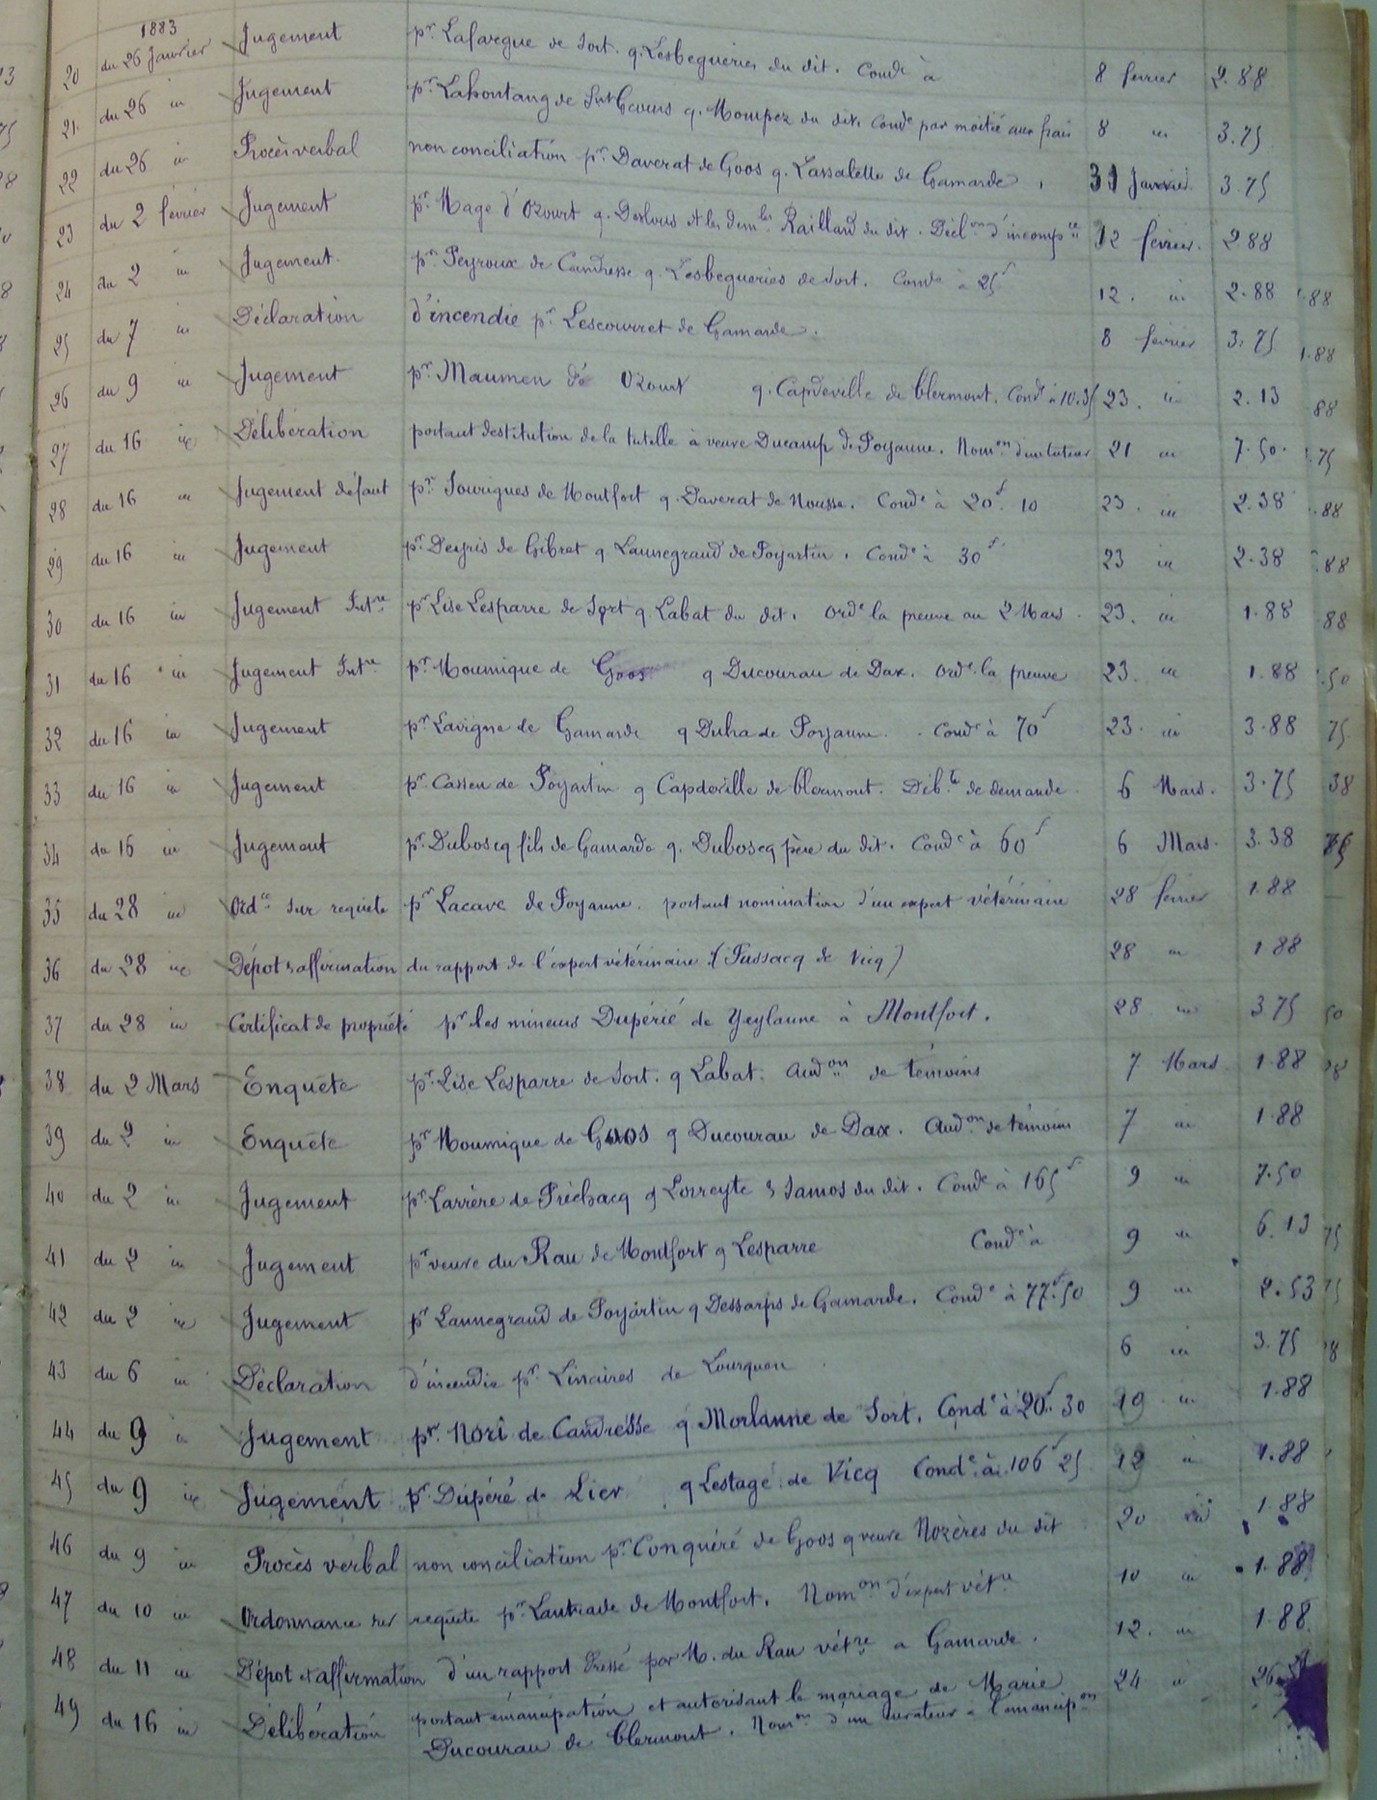 1883
20 du 26 Janvier Jugement pr. Lafargue de Sort. q. Lesbegueries du dit. Condé à 8 fevrier 2.88
21. du 26 in Jugement pr. Lahontang de q. Mompez du dit. Condé par moitié aux frais 8 in 3.75
22 du 26 in Procès verbal non conciliation pr. Daverat de Goos q. Lassalette de Gamarde. 31 Janvier. 3.75
23 du 2 février Jugement pr. Hage d'Ozourt q. et les demles Raillard du dit. Déclon d'incompce 12 février. 2 88
24 du 2 in Jugement. pr. Peyroux de Candresse q. Lesbegueries de Sort. Condé à 25f 12. in 2.88
25 du 7 in Déclaration d'incendie pr. Lescourret de Gamarde. 8 fevrier 3.75
26 du 9 in Jugement pr. Maumen de Ozourt q. Capdeville de Clermont. Condé à 10.35 23. in 2.13
27 du 16 in Délibération portant destitution de la tutelle à veuve Ducamp de Poyanne. Nomon d'un tuteur 21 in 7.50
28 du 16 in Jugement défaut pr. Sourigues de Montfort q. Daverat de Nousse. Condé à 20f. 10 23. in 2.38
29 du 16 in Jugement pr. Deyris de Gibret q Lannegrand de Poyartin. Condé à 30f 23 in 2.38
30 du 16 in Jugement Intre pr Lise Lesparre de Sort q. Labat du dit. Ordé la preuve au 2 Mars. 23. in 1.88
31 du 16 in Jugement Intre pr. Moumique de Goos q Ducourau de Dax. Ordé. la preuve 23. in 1.88
32 du 16 in Jugement pr Lavigne de Gamarde q Duha de Poyanne. Condé à 70f 23. in 3.88
33 du 16 in Jugement pr. Cassen de Poyartin q Capdeville de Clermont. Débté de demande. 6 Mars. 3.75
34 du 16 in Jugement pr. Duboscq fils de Gamarde q. Duboscq père du dit. Condé à 60f 6 Mars. 3.38
35 du 28 in Ordce sur requête pr Lacave de Poyanne. portant nomination d'un expert vétérinaire 28 février 1.88
36 du 28 in Dépot & affirmation du rapport de l'expert vétérinaire (Tussacq de Vicq) 28 in 1 88
37 du 28 in Certificat de propriété pr les mineurs Dupérié de Yeylanne à Montfort. 28 in 3.75
38 du 2 Mars Enquête pr. Lise Lesparre de Sort. q Labat. Audon de témoins 7 Mars. 1.88
39 du 2 in Enquête pr Moumique de Goos q Ducourau de Dax. Audon de témoins 7 in 1.88
40 du 2 in Jugement pr. Larrère de Préchacq q Lorreyte & Samos du dit. Condé à 165f 9 in 7.50
41 du 2 in Jugement pr veuve du Rau de Montfort q Lesparre Condé à 9 in 6.13
42 du 2 in Jugement pr Lannegrand de Poyartin q Dessarps de Gamarde. Condé à 77f.50 9 in 2.53
43 du 6 in Déclaration d'incendie pr. Linaires de Lourquen 6 in 3.75
44 du 9 in Jugement pr. Nori de Candresse q Morlanne de Sort. Condé à 20f. 30 19 in 1.88
45 du 9 in Jugement pr. Dupéré de Lier q Lestage de Vicq Condé. à 106f 25 12 in 1.88
46 du 9 in Procès verbal non conciliation pr. Conquéré de Goos q veuve Nozères du dit 20 in 1.88
47 du 10 in Ordonnance sur requête pr. Lautrade de Montfort. Nomon d'expert vétre 10 in 1.88
48 du 11 in Dépot et affirmation d'un rapport dressé par M. du Rau vétre a Gamarde. 12. in 1.88
49 du 16 in Délibération portant émancipation et autorisant le mariage de Marie 24 in 26
Ducourau de Clermont. Nomon d'un curateur à l'émancipon